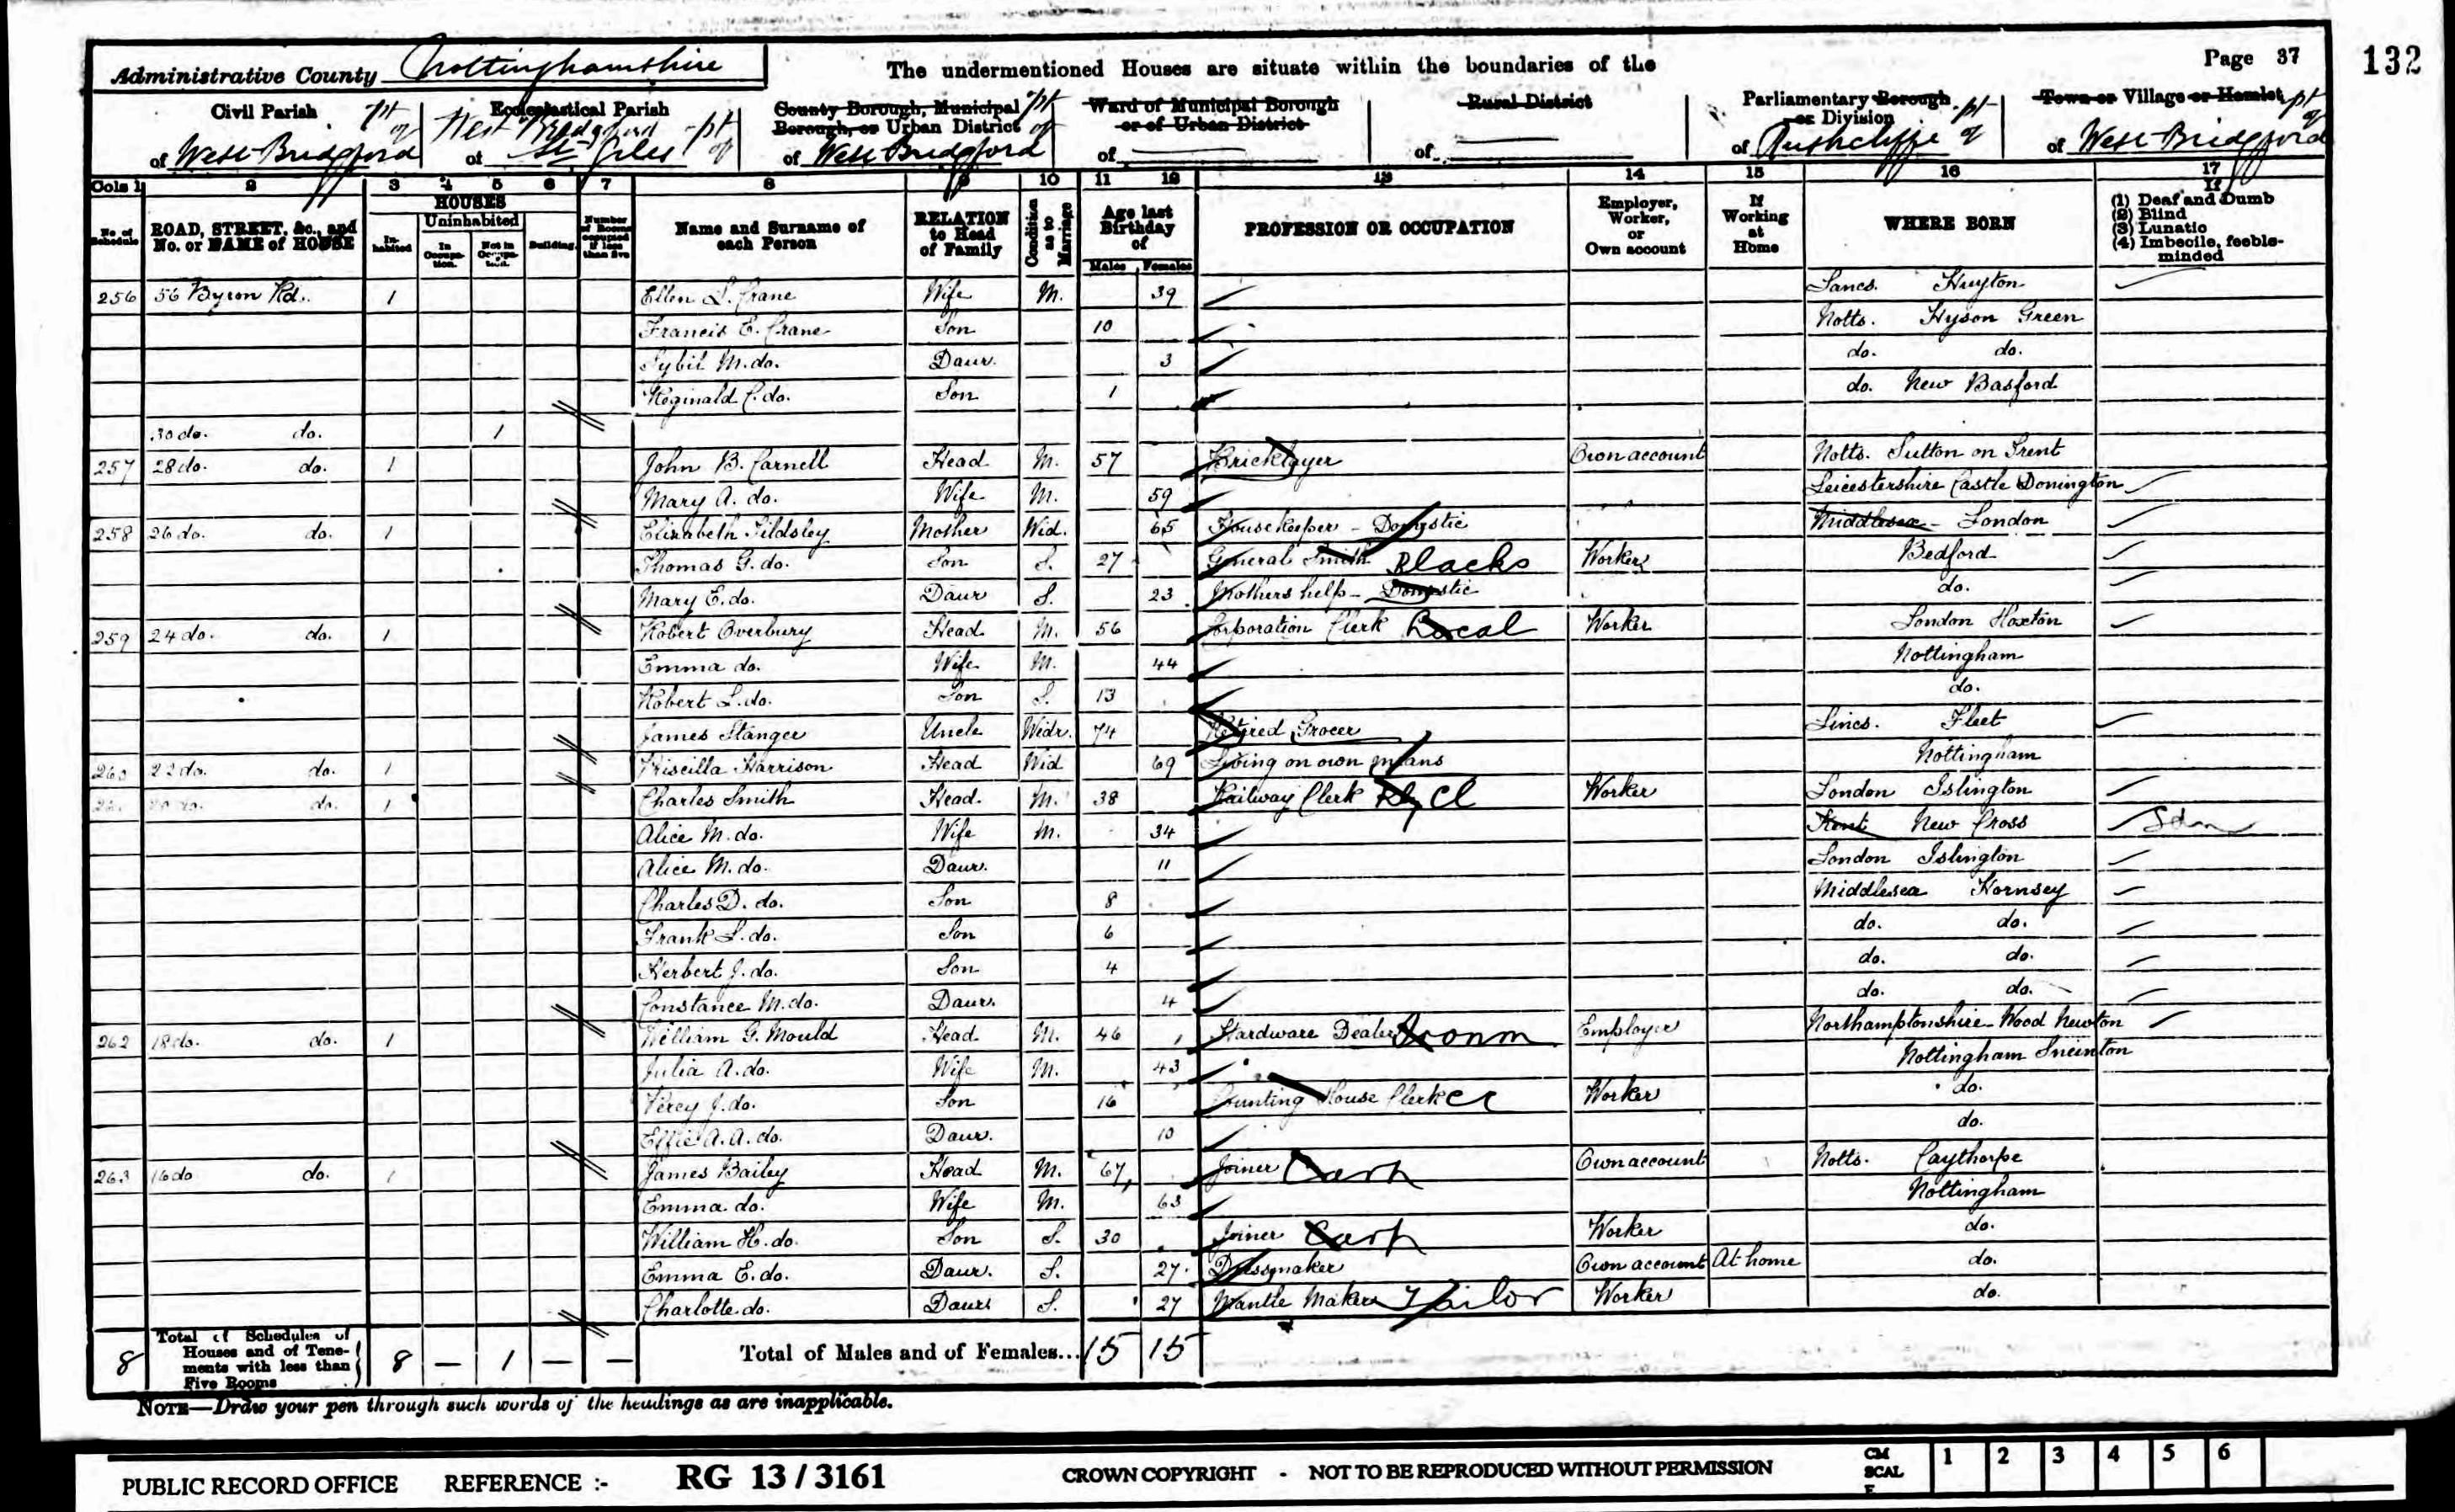 Page 37
132
Administrative County Nottinghamshire
The undermentioned Houses are situate within the boundaries of the
Civil Parish pt of of West Bridgford
Ecclesiastical Parish of West Bridgford St Giles pt of
County Borough, Municipal Borough, or Urban District pt of of West Bridgford
Ward of Municipal Borough or of Urban District of
Rural District of
Parliamentary Borough or Division pt of of Rushcliffe
Town or Village or Hamlet pt of of West Bridgford
Cols 1 2 3 4 5 6 7 8 9 10 11 12 13 14 15 16 17
No. of Schedule
ROAD, STREET, &c., and No. or NAME of HOUSE
HOUSES
Inhabited
Uninhabited
In Occupation.
Not in Occupation.
Building
Number of Rooms occupied if less than five
Name and Surname of each Person
RELATION to Head of Family
Condition as to Marriage
Age last Birthday of
Males Females
PROFESSION OR OCCUPATION
Employer, Worker, or Own account
If Working at Home
WHERE BORN
If (1) Deaf and Dumb (2) Blind (3) Lunatic (4) Imbecile, feeble-minded
256 56 Byron Rd. 1 Ellen L. Crane Wife M. 39 Lancs. Huyton
Francis E. Crane Son 10 Notts. Hyson Green
Sybil M. do. Daur. 3 do. do.
Reginald C. do. Son 1 do. New Basford
30 do. do. 1
257 28 do. do. 1 John B. Carnell Head M. 57 Bricklayer Own account Notts. Sutton on Trent
Mary A. do. Wife M. 59 Leicestershire Castle Donington
258 26 do. do. 1 Elizabeth Tildsley Mother Wid. 65 Housekeeper - Domestic Middlesex - London
Thomas G. do. Son S. 27 General Smith Blacks Worker Bedford
Mary E. do. Daur S. 23 Mothers help - Domestic do.
259 24 do. do. 1 Robert Overbury Head M. 56 Corporation Clerk Local Worker London Hoxton
Emma do. Wife M. 44 Nottingham
Robert L. do. Son S. 13 do.
James Stanger Uncle Widr. 74 Retired Grocer Lincs. Fleet
260 22 do. do. 1 Priscilla Harrison Head Wid 69 Living on own means Nottingham
20 do. do. 1 Charles Smith Head. M. 38 Railway Clerk Rly Cl Worker London Islington
Alice M. do. Wife M. 34 Kent New Cross
Alice M. do. Daur. 11 London Islington
Charles D. do. Son 8 Middlesex Hornsey
Frank L. do. Son 6 do. do.
Herbert J. do. Son 4 do. do.
Constance M. do. Daur. 4 do. do.
262 18 do. do. 1 William G. Mould Head M. 46 Hardware Dealer Ironm Employer Northamptonshire Wood Newton
Julia A. do. Wife M. 43 Nottingham Sneinton
Percy J. do. Son 16 Counting House Clerk Cl Worker do.
Effie A. A. do. Daur. 10 do.
263 16 do do. 1 James Bailey Head M. 67 Joiner Carp Own account Notts. Caythorpe
Emma do. Wife M. 63 Nottingham
William H. do. Son S. 30 Joiner Carp Worker do.
Emma E. do. Daur. S. 27 Dressmaker Own account At home do.
Charlotte do. Daur S. 27 Mantle Maker Tailor Worker do.
8 Total of Schedules of Houses and of Tenements with less than Five Rooms 8 — 1 — — Total of Males and of Females... 15 15
NOTE—Draw your pen through such words of the headings as are inapplicable.
PUBLIC RECORD OFFICE REFERENCE :- RG 13 / 3161 CROWN COPYRIGHT - NOT TO BE REPRODUCED WITHOUT PERMISSION CM SCALE 1 2 3 4 5 6